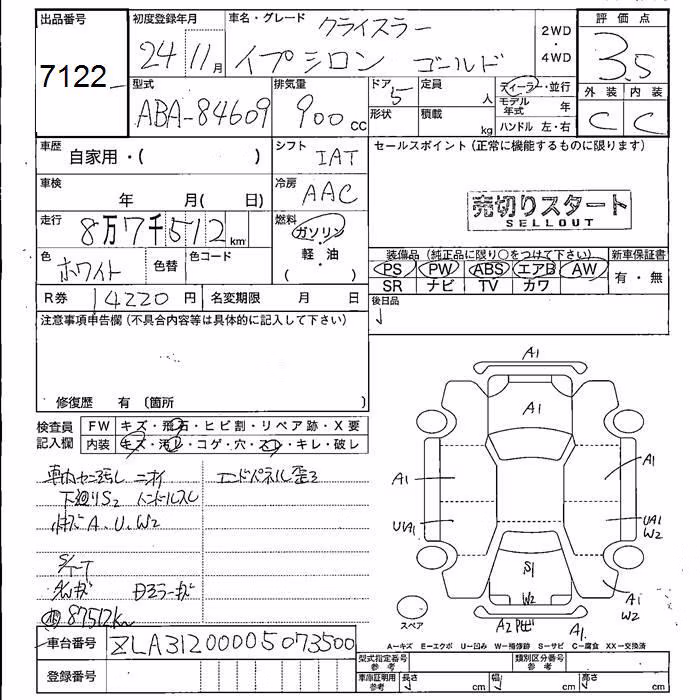 出品番号
7122
初度登録年月
24 11月
車名・グレード
クライスラー
イプシロン ゴールド
2WD
・
4WD
評価点
3.5
外装 内装
C C
型式
ABA-84609
排気量
900cc
ドア
5
形状
定員
人
積載
kg
ディーラー・並行
モデル年式 年
ハンドル 左・右
車歴
自家用・( )
シフト
IAT
セールスポイント (正常に機能するものに限ります)
売切りスタート
SELLOUT
車検
年 月( 日)
冷房
AAC
走行
8万7千512km
燃料
ガソリン
・
軽・油
( )
色
ホワイト
色替
色コード
装備品 (純正品に限り○をつけて下さい)
PS PW ABS エアB AW
SR ナビ TV カワ
新車保証書
有・無
R券
14220円
名変期限 月 日
後日品
注意事項申告欄 (不具合内容等は具体的に記入して下さい)
修復歴 有 〔箇所 〕
検査員記入欄
FW キズ・飛石・ヒビ割・リペア跡・X要
内装 キズ・汚れ・コゲ・穴・スレ・キレ・破レ
車内セニ汚し ニオイ
エンドパネル歪ミ
下廻りS2 ハンドルスレ
A.U.W2
87512km
車台番号
ZLA31200005073500
登録番号
A1
A1
A1
A1
UA1
UA1
W2
S1
W2
A1
W2
A2
A1
スペア
A=キズ E=エクボ U=凹み W=補修跡 S=サビ C=腐食 XX=交換済
型式指定番号
参考
類別区分番号
参考
車庫証明用
参考
長さ cm 幅 cm 高さ cm